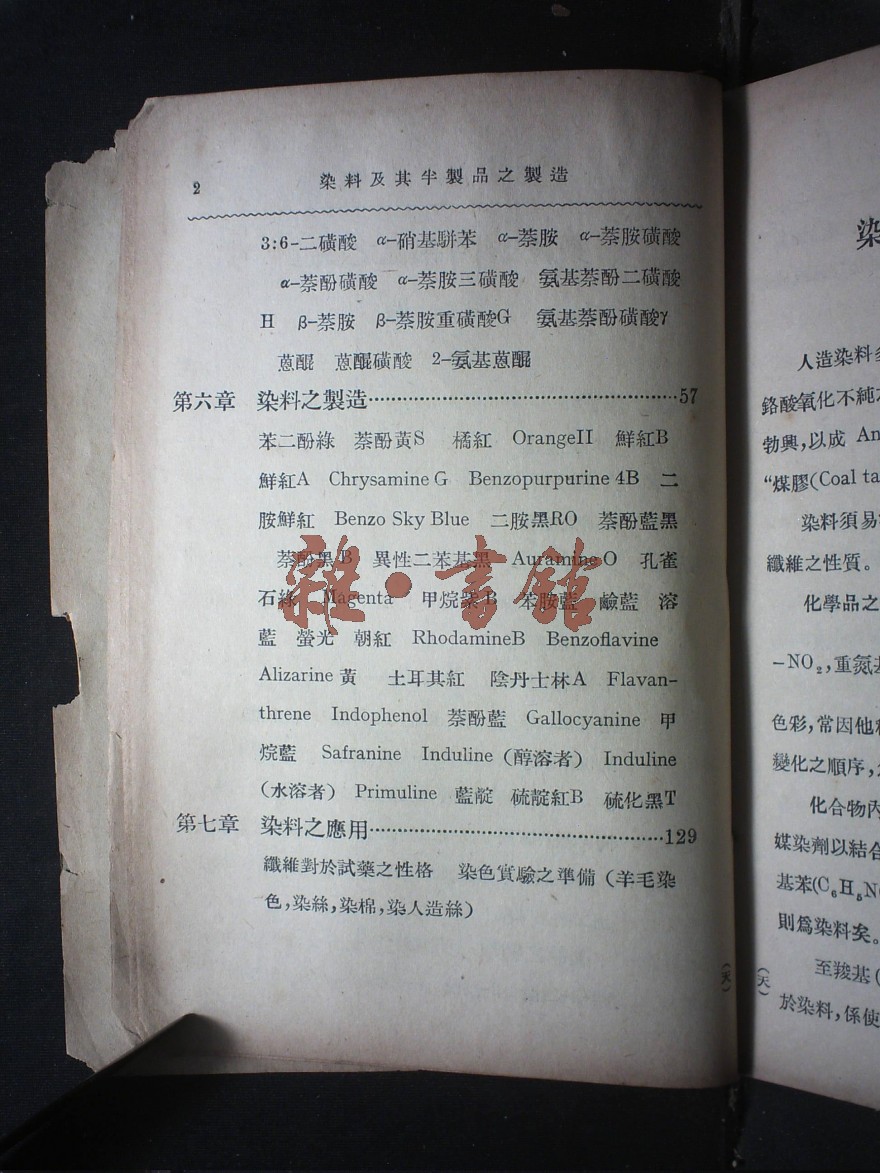 2
染料及其半製品之製造
3:6-二磺酸 α-硝基駢苯 α-萘胺 α-萘胺磺酸
α-萘酚磺酸 α-萘胺三磺酸 氨基萘酚二磺酸
H β-萘胺 β-萘胺重磺酸G 氨基萘酚磺酸γ
蒽醌 蒽醌磺酸 2-氨基蒽醌
第六章 染料之製造……57
苯二酚綠 萘酚黃S 橘紅 OrangeII 鮮紅B
鮮紅A Chrysamine G Benzopurpurine 4B 二
胺鮮紅 Benzo Sky Blue 二胺黑RO 萘酚藍黑
萘酚黑B 異性二苯基黑 Auramine O 孔雀
石綠 Magenta 甲烷紫B 苯胺藍 鹼藍 溶
藍 螢光 朝紅 RhodamineB Benzoflavine
Alizarine 黃 土耳其紅 陰丹士林A Flavan-
threne Indophenol 萘酚藍 Gallocyanine 甲
烷藍 Safranine Induline (醇溶者) Induline
(水溶者) Primuline 藍靛 硫靛紅B 硫化黑T
第七章 染料之應用……129
纖維對於試藥之性格 染色實驗之準備 (羊毛染
色,染絲,染棉,染人造絲)
(天)
雜·書館
染
人造染料
鉻酸氧化不純
勃興,以成 An
“煤膠(Coal ta
染料須易
纖維之性質。
化學品之
-NO₂,重氮基
色彩,常因他
變化之順序,
化合物內
媒染劑以結合
基苯(C₆H₅N
則爲染料矣。
至羧基(
於染料,係使
(天)